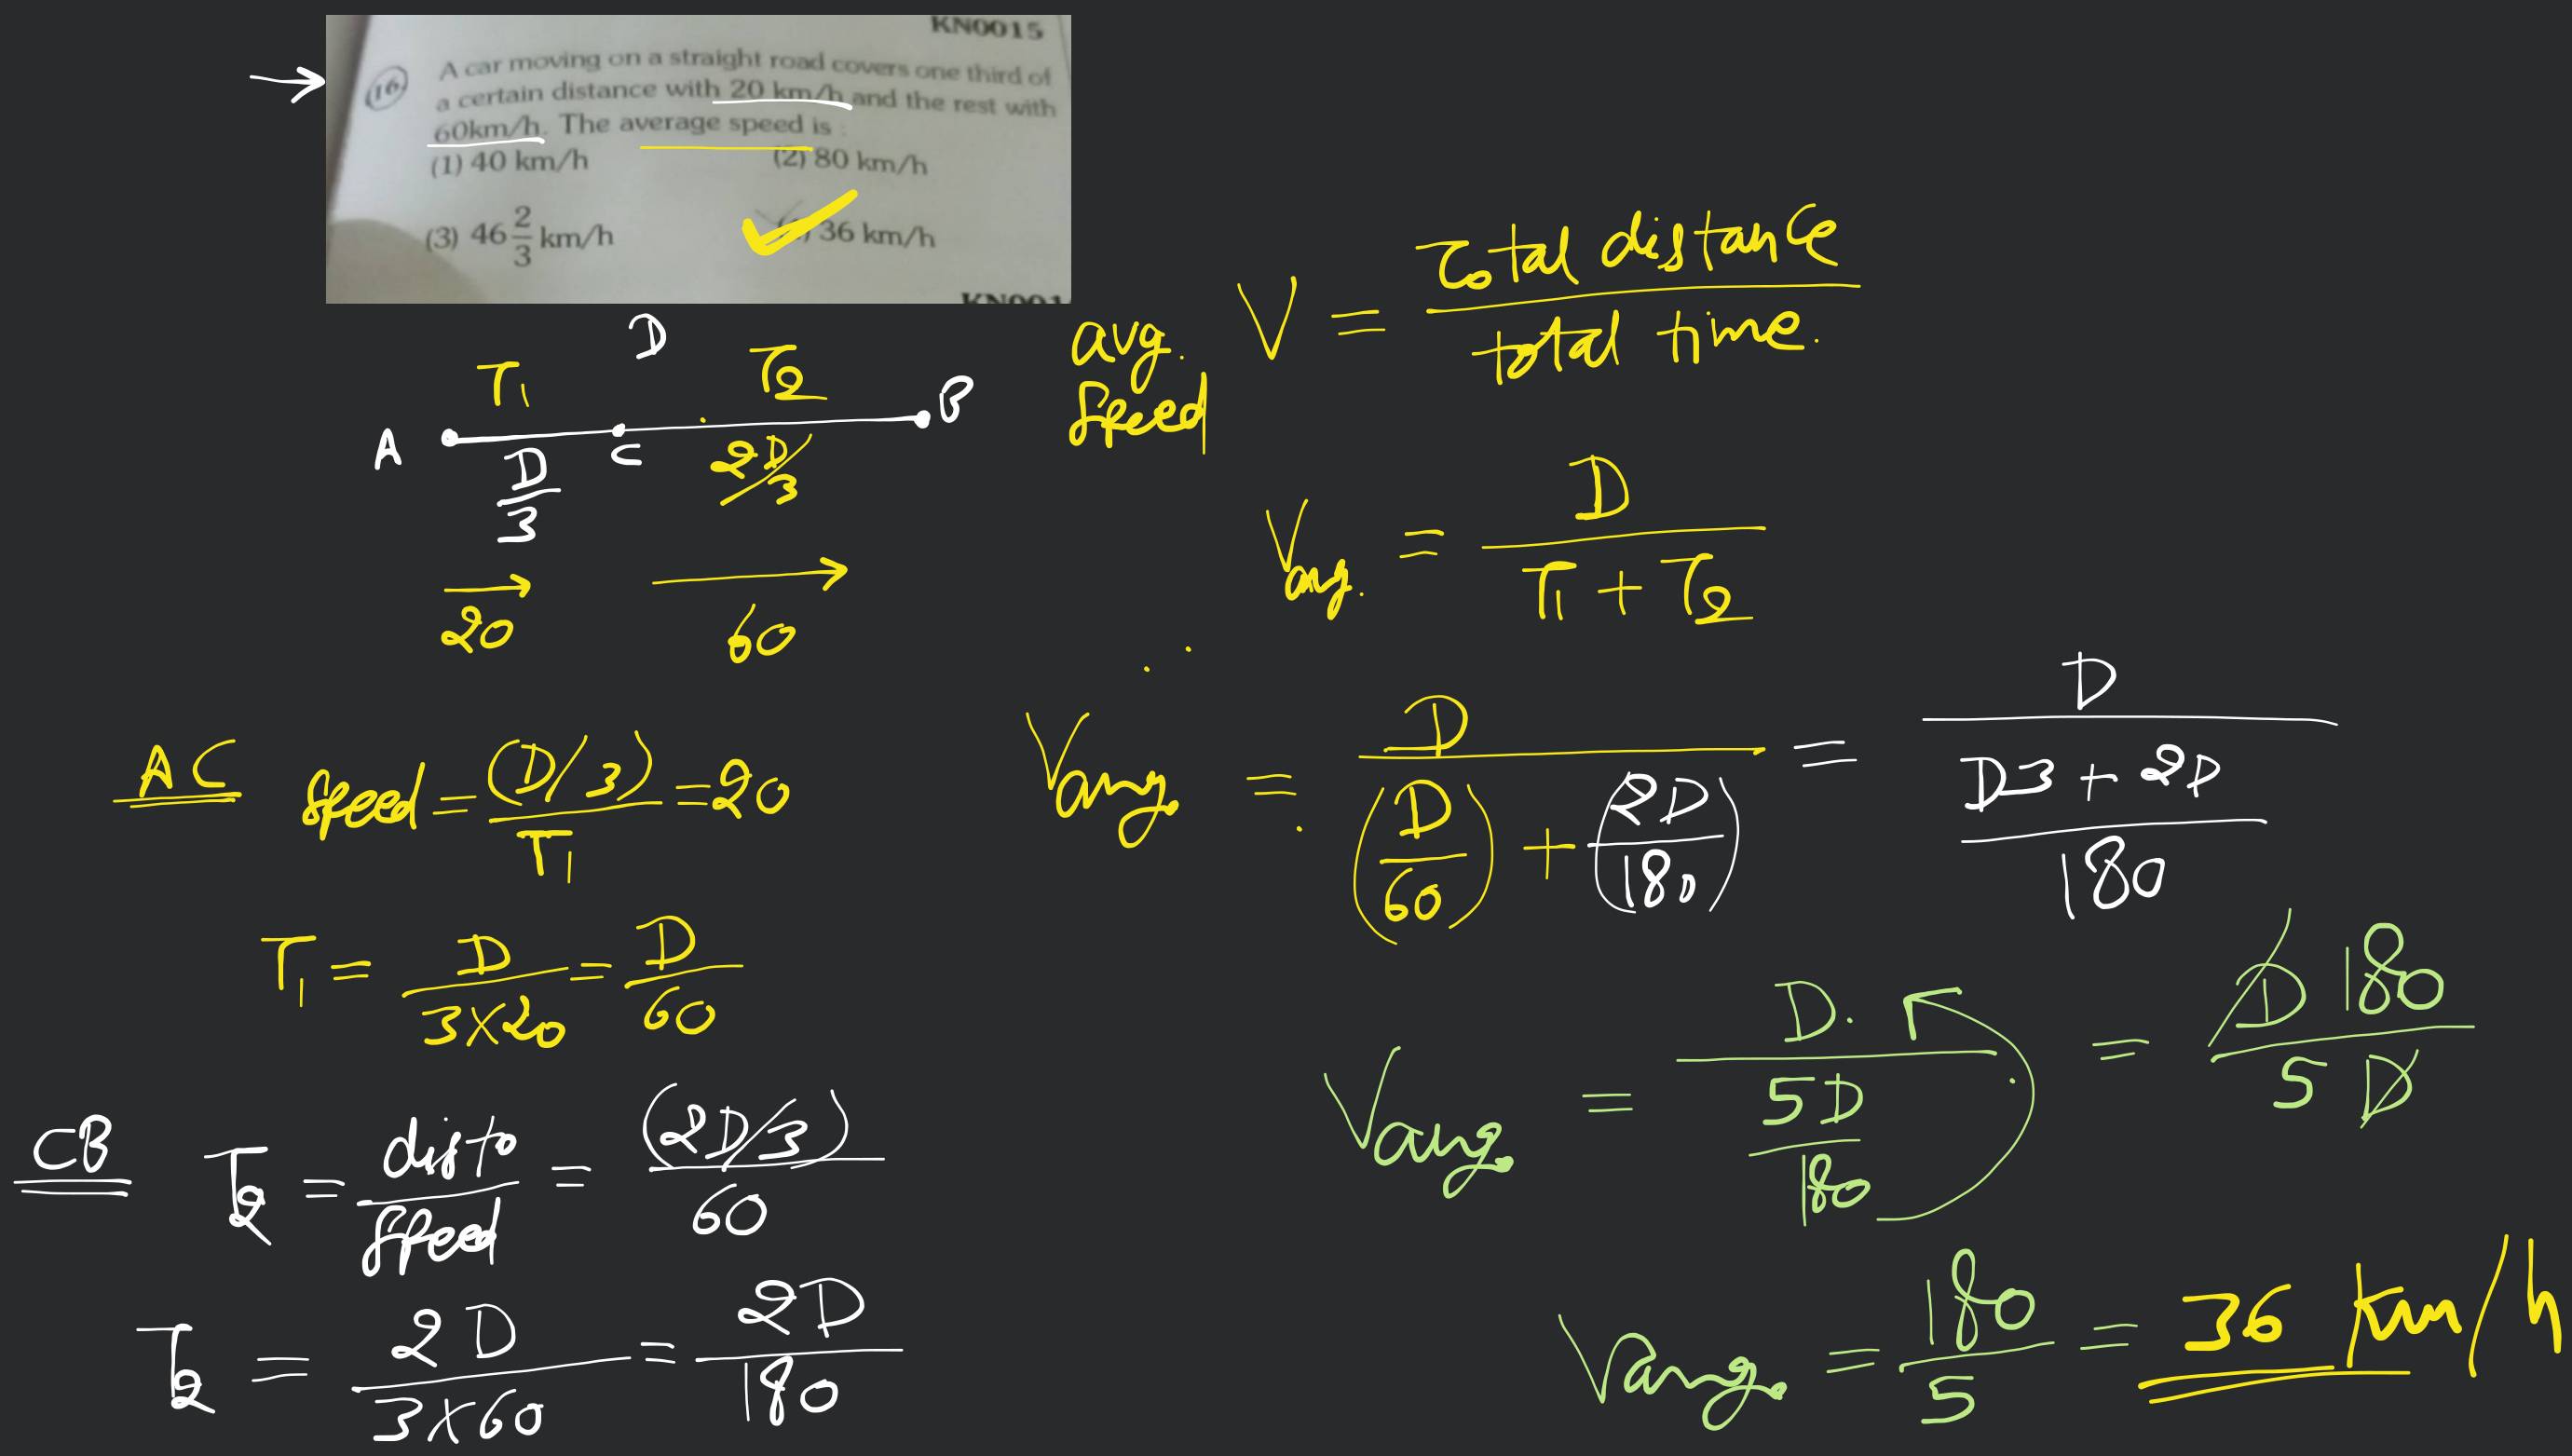 KN0015
(16) A car moving on a straight road covers one third of
a certain distance with 20 km/h and the rest with
60km/h. The average speed is :
(1) 40 km/h (2) 80 km/h
(3) 46 2/3 km/h 36 km/h
D
T1 T2
A C B
D/3 2D/3
20 60
avg. speed V = Total distance / total time.
Vavg. = D / (T1 + T2)
AC speed = (D/3) / T1 = 20
T1 = D / (3x20) = D/60
CB T2 = dist. / speed = (2D/3) / 60
T2 = 2D / (3x60) = 2D / 180
Vavg. = D / ((D/60) + (2D/180)) = D / ((D3 + 2D) / 180)
Vavg. = D. / (5D / 180) = D 180 / 5 D
Vavg. = 180 / 5 = 36 km/h